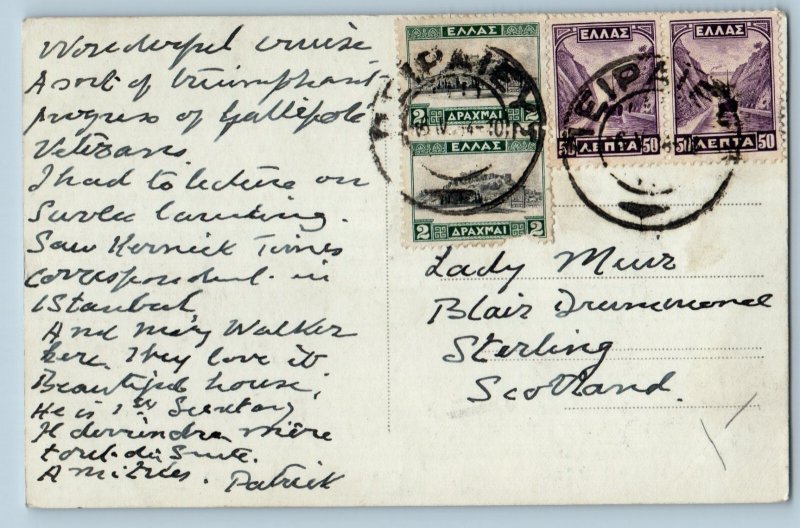 Wonderful cruise
A sort of triumphant
progress of Gallipoli
Veterans.
I had to lecture on
Suvla landing.
Saw Kernick Times
correspondent in
Istanbul,
And May Walker
here. They love it
Beautiful house,
He is 1st Secretary
Il deviendra mère
tout de suite.
Amitiés. Patrick
ΕΛΛΑΣ
2 ΔΡΑΧΜΑΙ
ΕΛΛΑΣ
2 ΔΡΑΧΜΑΙ 2
ΕΛΛΑΣ
50 ΛΕΠΤΑ 50
ΕΛΛΑΣ
50 ΛΕΠΤΑ 50
ΠΕΙΡΑΙΕΥΣ
ΠΕΙΡΑΙΕΥΣ
Lady Muir
Blair Drummond
Sterling
Scotland.